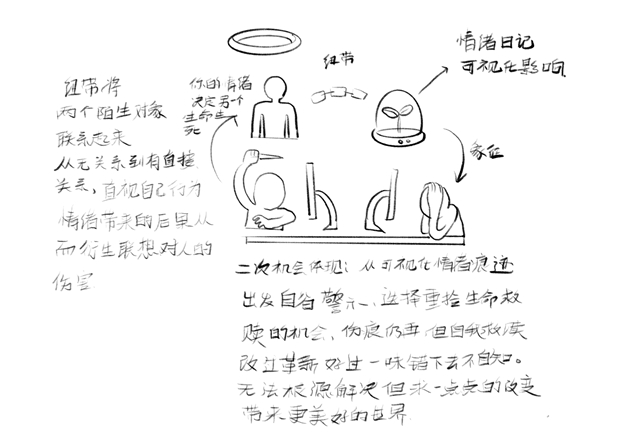 纽带将
两个陌生对象
联系起来
从无关系到有直接
关系，直视自己行为
情绪带来的后果从
而衍生联想对人的
伤害
你的情绪
决定另一个
生命生
死
纽带
情绪日记
可视化影响
象征
二次机会体现：从可视化情绪痕迹
出发自省警示、选择重拾生命救
赎的机会，伤痕仍再但自我救赎
改过革新好过一味错下去不自知。
无法根源解决但求一点点的改变
带来更美好的世界